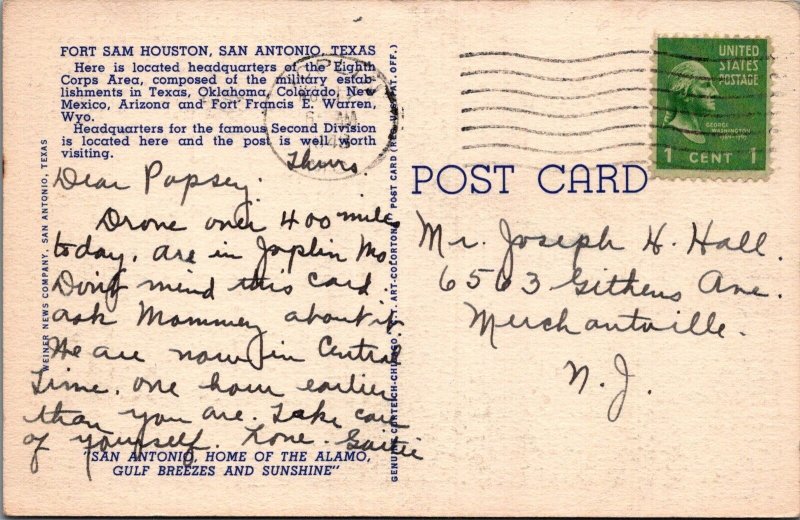 FORT SAM HOUSTON, SAN ANTONIO, TEXAS
Here is located headquarters of the Eighth
Corps Area, composed of the military estab-
lishments in Texas, Oklahoma, Colorado, New
Mexico, Arizona and Fort Francis E. Warren,
Wyo.
Headquarters for the famous Second Division
is located here and the post is well worth
visiting.
Thurs.
Dear Popsey:
Drove over 400 miles
today, are in Joplin Mo.
Don't mind this card.
ask Mommey about it
We are now in Central
Time, one hour earlier
than you are. Take care
of yourself. Love.
"SAN ANTONIO, HOME OF THE ALAMO,
GULF BREEZES AND SUNSHINE"
WEINER NEWS COMPANY, SAN ANTONIO, TEXAS
GENUINE CURTEICH-CHICAGO "C.T. ART-COLORTONE" POST CARD (REG. U.S. PAT. OFF.)
AM
UNITED
STATES
POSTAGE
GEORGE
WASHINGTON
1789-1797
1 CENT 1
POST CARD
Mr. Joseph H. Hall.
6563 Githens Ave.
Merchantville.
N. J.